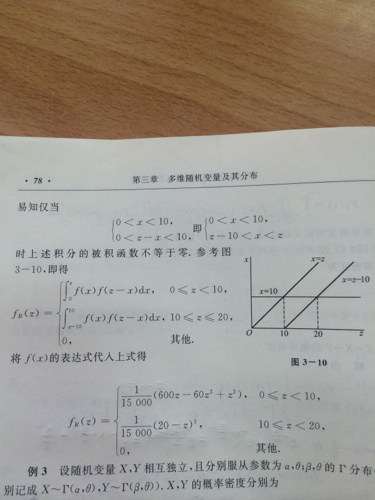 · 78 ·　第三章　多维随机变量及其分布
易知仅当
{0<x<10, 0<z-x<10, 即 {0<x<10, z-10<x<z
时上述积分的被积函数不等于零.参考图
3-10,即得
f_R(z)= {∫_0^z f(x)f(z-x)dx, 0≤z<10,
∫_{z-10}^{10} f(x)f(z-x)dx, 10≤z≤20,
0, 其他.
x
x=z
x=10
x=z-10
O 10 20 z
图 3-10
将 f(x)的表达式代入上式得
f_R(z)= {1/15 000 (600z-60z²+z³), 0≤z<10,
1/15 000 (20-z)³, 10≤z<20,
0, 其他.
例 3　设随机变量 X,Y 相互独立,且分别服从参数为 α,θ;β,θ 的 Γ 分布
别记成 X~Γ(α,θ),Y~Γ(β,θ)).X,Y 的概率密度分别为